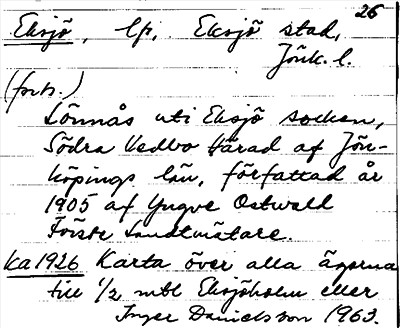 26
Eksjö, lp, Eksjö stad,
Jönk. l.
(forts.)
Lönnås uti Eksjö socken,
Södra Vedbo härad af Jön-
köpings län, författad år
1905 af Yngve Ostwald
Förste Landtmätare.
ka 1926 Karta över alla ägorna
till 1/2 mtl Eksjöholm eller
Inger Danielsson 1963.